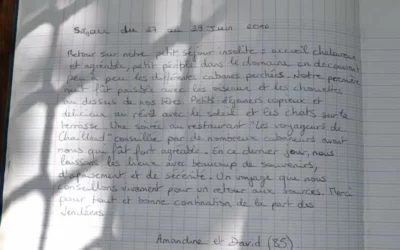 Séjour du 27 au 29 Juin 2016
Retour sur notre petit séjour insolite : accueil chaleureux
et agréable, petit périple dans le domaine en découvrant
peu à peu les différentes cabanes perchées. Notre première
nuit fût paisible avec les oiseaux et les chouettes
au dessus de nos têtes. Petits-déjeuners copieux et
délicieux au réveil avec le soleil et les chats sur la
terrasse. Une soirée au restaurant "les voyageurs de
" conseillée par de nombreux cabaneurs avant
nous qui fût fort agréable. En ce dernier jour, nous
laissons les lieux avec beaucoup de souvenirs,
d'apaisement et de sérénité. Un voyage que nous
conseillons vivement pour un retour aux sources. Merci
pour tout et bonne continuation de la part des
Vendéens.
Amandine et David (85)